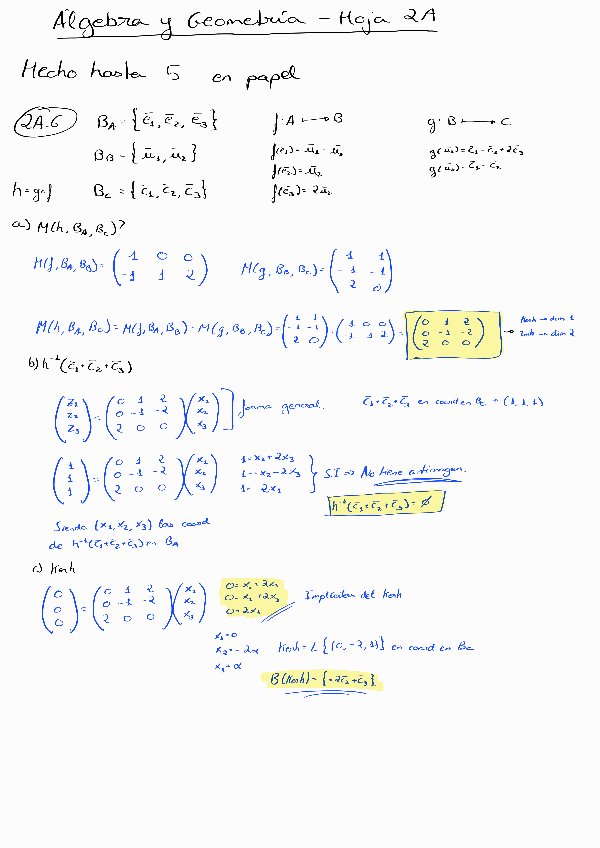 Álgebra y Geometría - Hoja 2A
Hecho hasta 5 en papel
2A.6 B_A = {ē₁, ē₂, ē₃} f: A ⟼ B g: B ⟼ C
B_B = {ū₁, ū₂} f(ē₁) = ū₁ - ū₂ g(ū₁) = c̄₁ - c̄₂ + 2c̄₃
f(ē₂) = ū₂ g(ū₂) = c̄₁ - c̄₂
h = g∘f B_C = {c̄₁, c̄₂, c̄₃} f(ē₃) = 2ū₂
a) M(h, B_A, B_C)?
M(f, B_A, B_B) = (1 0 0; -1 1 2) M(g, B_B, B_C) = (1 1; -1 -1; 2 0)
M(h, B_A, B_C) = M(f, B_A, B_B) · M(g, B_B, B_C) = (1 1; -1 -1; 2 0) · (1 0 0; -1 1 2) = (0 1 2; 0 -1 -2; 2 0 0) → Kerh → dim 1
Imh → dim 2
b) h⁻¹(c̄₁+c̄₂+c̄₃)
(z₁; z₂; z₃) = (0 1 2; 0 -1 -2; 2 0 0)(x₁; x₂; x₃) ] forma general. c̄₁+c̄₂+c̄₃ en coord en B_C = (1, 1, 1)
(1; 1; 1) = (0 1 2; 0 -1 -2; 2 0 0)(x₁; x₂; x₃) 1 = x₂ + 2x₃
1 = -x₂ - 2x₃ } S.I ⇒ No tiene antiimagen.
1 = 2x₁
h⁻¹(c̄₁+c̄₂+c̄₃) = ∅
Siendo (x₁, x₂, x₃) las coord
de h⁻¹(c̄₁+c̄₂+c̄₃) en B_A
c) Kerh
(0; 0; 0) = (0 1 2; 0 -1 -2; 2 0 0)(x₁; x₂; x₃) 0 = x₂ + 2x₃
0 = x₂ + 2x₃ Implícitas del Kerh
0 = 2x₁
x₁ = 0
x₂ = -2α Kerh = L{(0, -2, 1)} en coord en B_C
x₃ = α
B(Kerh) = {-2c̄₂ + c̄₃}